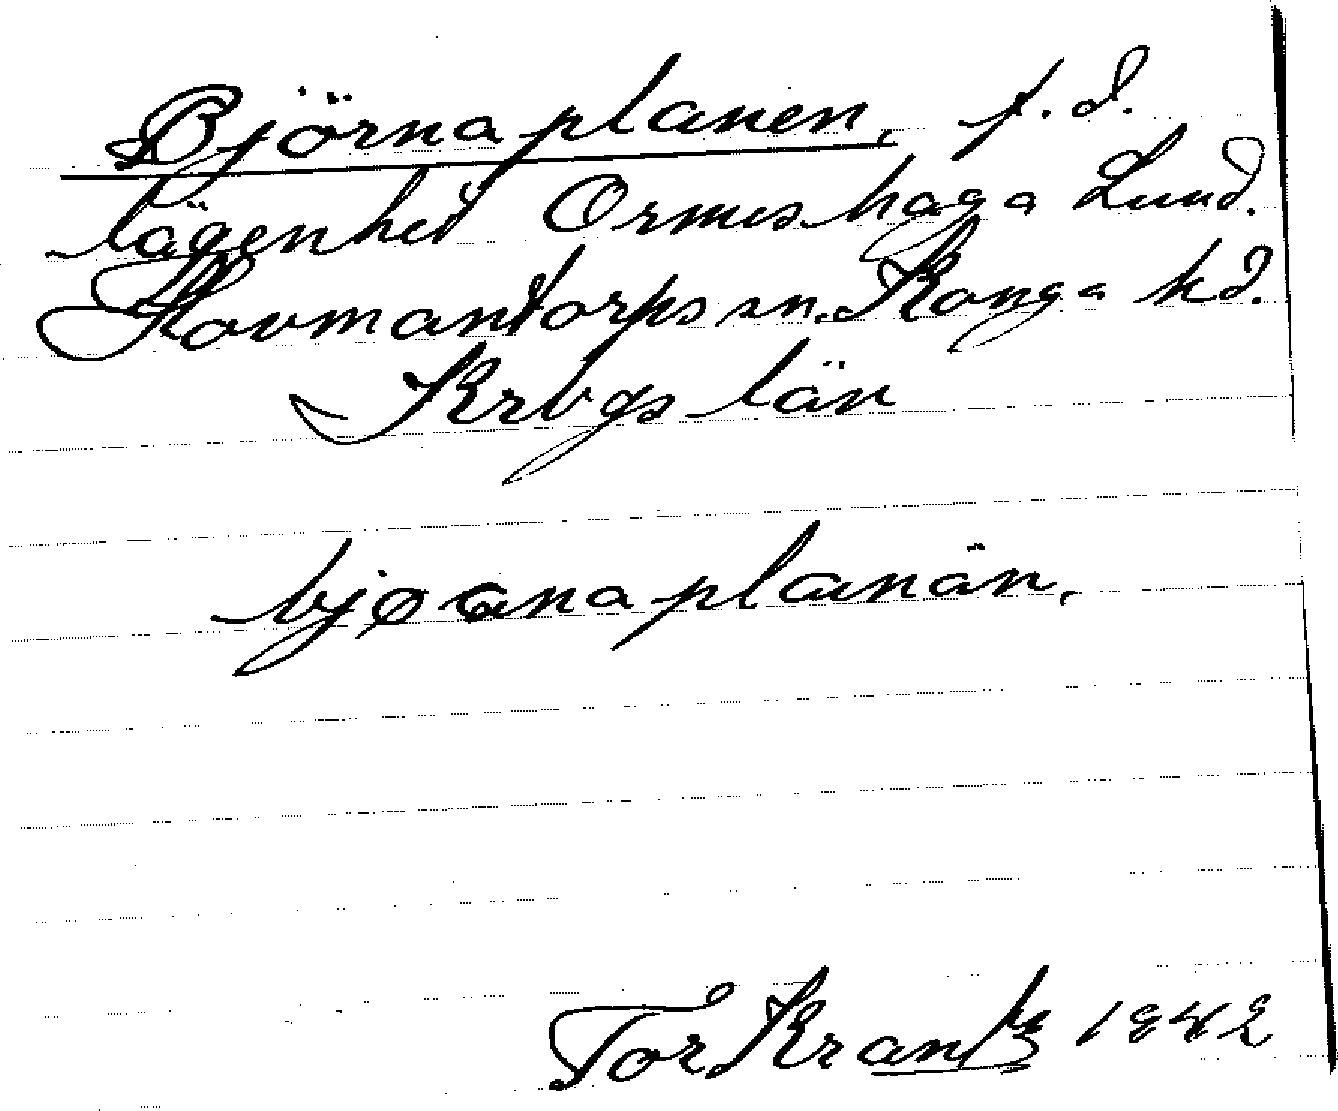 Björnaplanen, f.d.
lägenhet Ormeshaga Lund.
Hovmantorps sn. Konga hd.
Krbgs län
bjøanaplanän,
Tor Krantz 1942